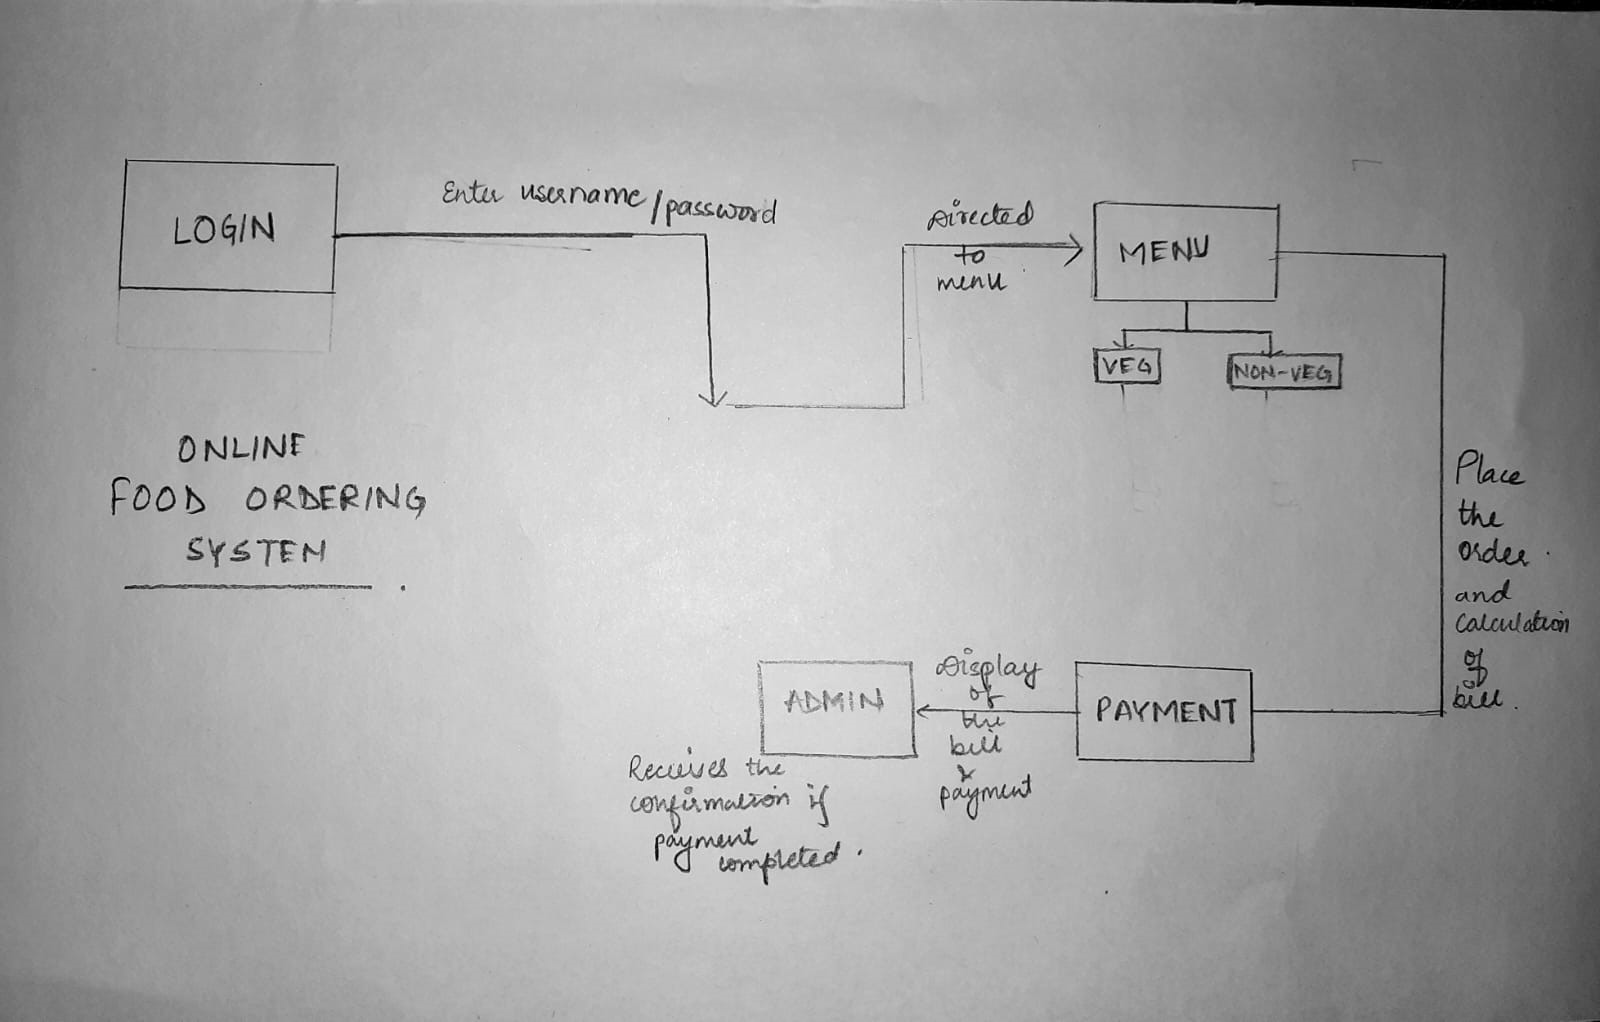 LOGIN
Enter username/password
Directed
to
menu
MENU
VEG
NON-VEG
ONLINE
FOOD ORDERING
SYSTEM
Place
the
order.
and
calculation
of
bill.
PAYMENT
Display
of
the
bill
&
payment
ADMIN
Receives the
confirmation if
payment
completed.